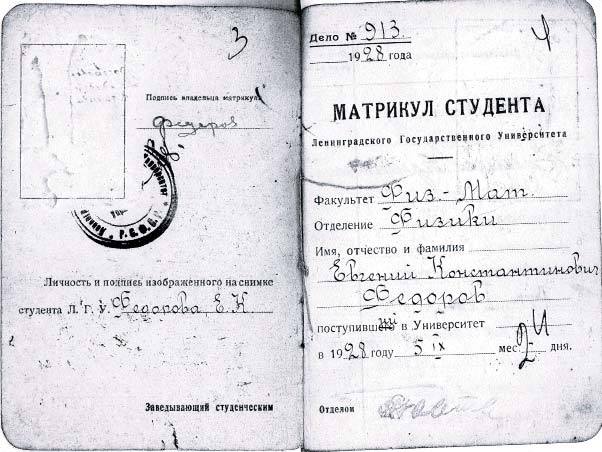 3
Подпись владельца матрикула
Федоров
Р.С.Ф.С.Р.
Личность и подпись изображенного на снимке
студента Л. Г. У. Федорова, Е.К
Заведывающий студенческим
Дело № 913
1928 года
4
МАТРИКУЛ СТУДЕНТА
Ленинградского Государственного Университета
Факультет Физ.-Мат.
Отделение Физики
Имя, отчество и фамилия
Евгений Константинович
Федоров
поступивший в Университет
в 1928 году 5 IX мес. 24 дня.
Отделом